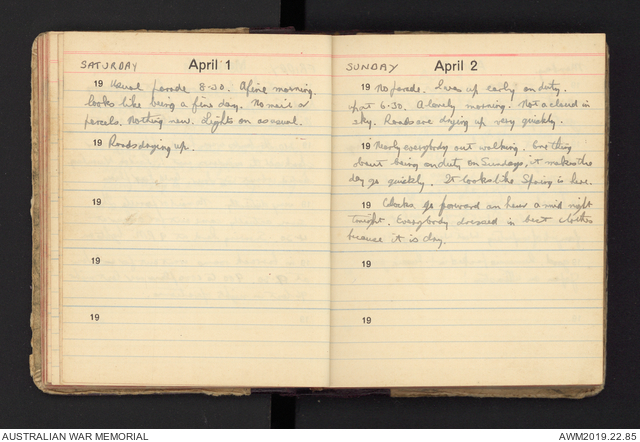 SATURDAY April 1
19 Usual parade 8-30. A fine morning.
looks like being a fine day. No mail or
parcels. Nothing new. Lights on as usual.
19 Roads drying up.
19
19
19
SUNDAY April 2
19 No parade. I was up early on duty.
at 6.30. A lovely morning. Not a cloud in
sky. Roads are drying up very quickly.
19 Nearly everybody out walking. One thing
about being on duty on Sundays, it makes the
day go quickly. It looks like Spring is here.
19 Clocks go forward an hour a mid night
tonight. Everybody dressed in best clothes
because it is dry.
19
19
AUSTRALIAN WAR MEMORIAL
AWM2019.22.85